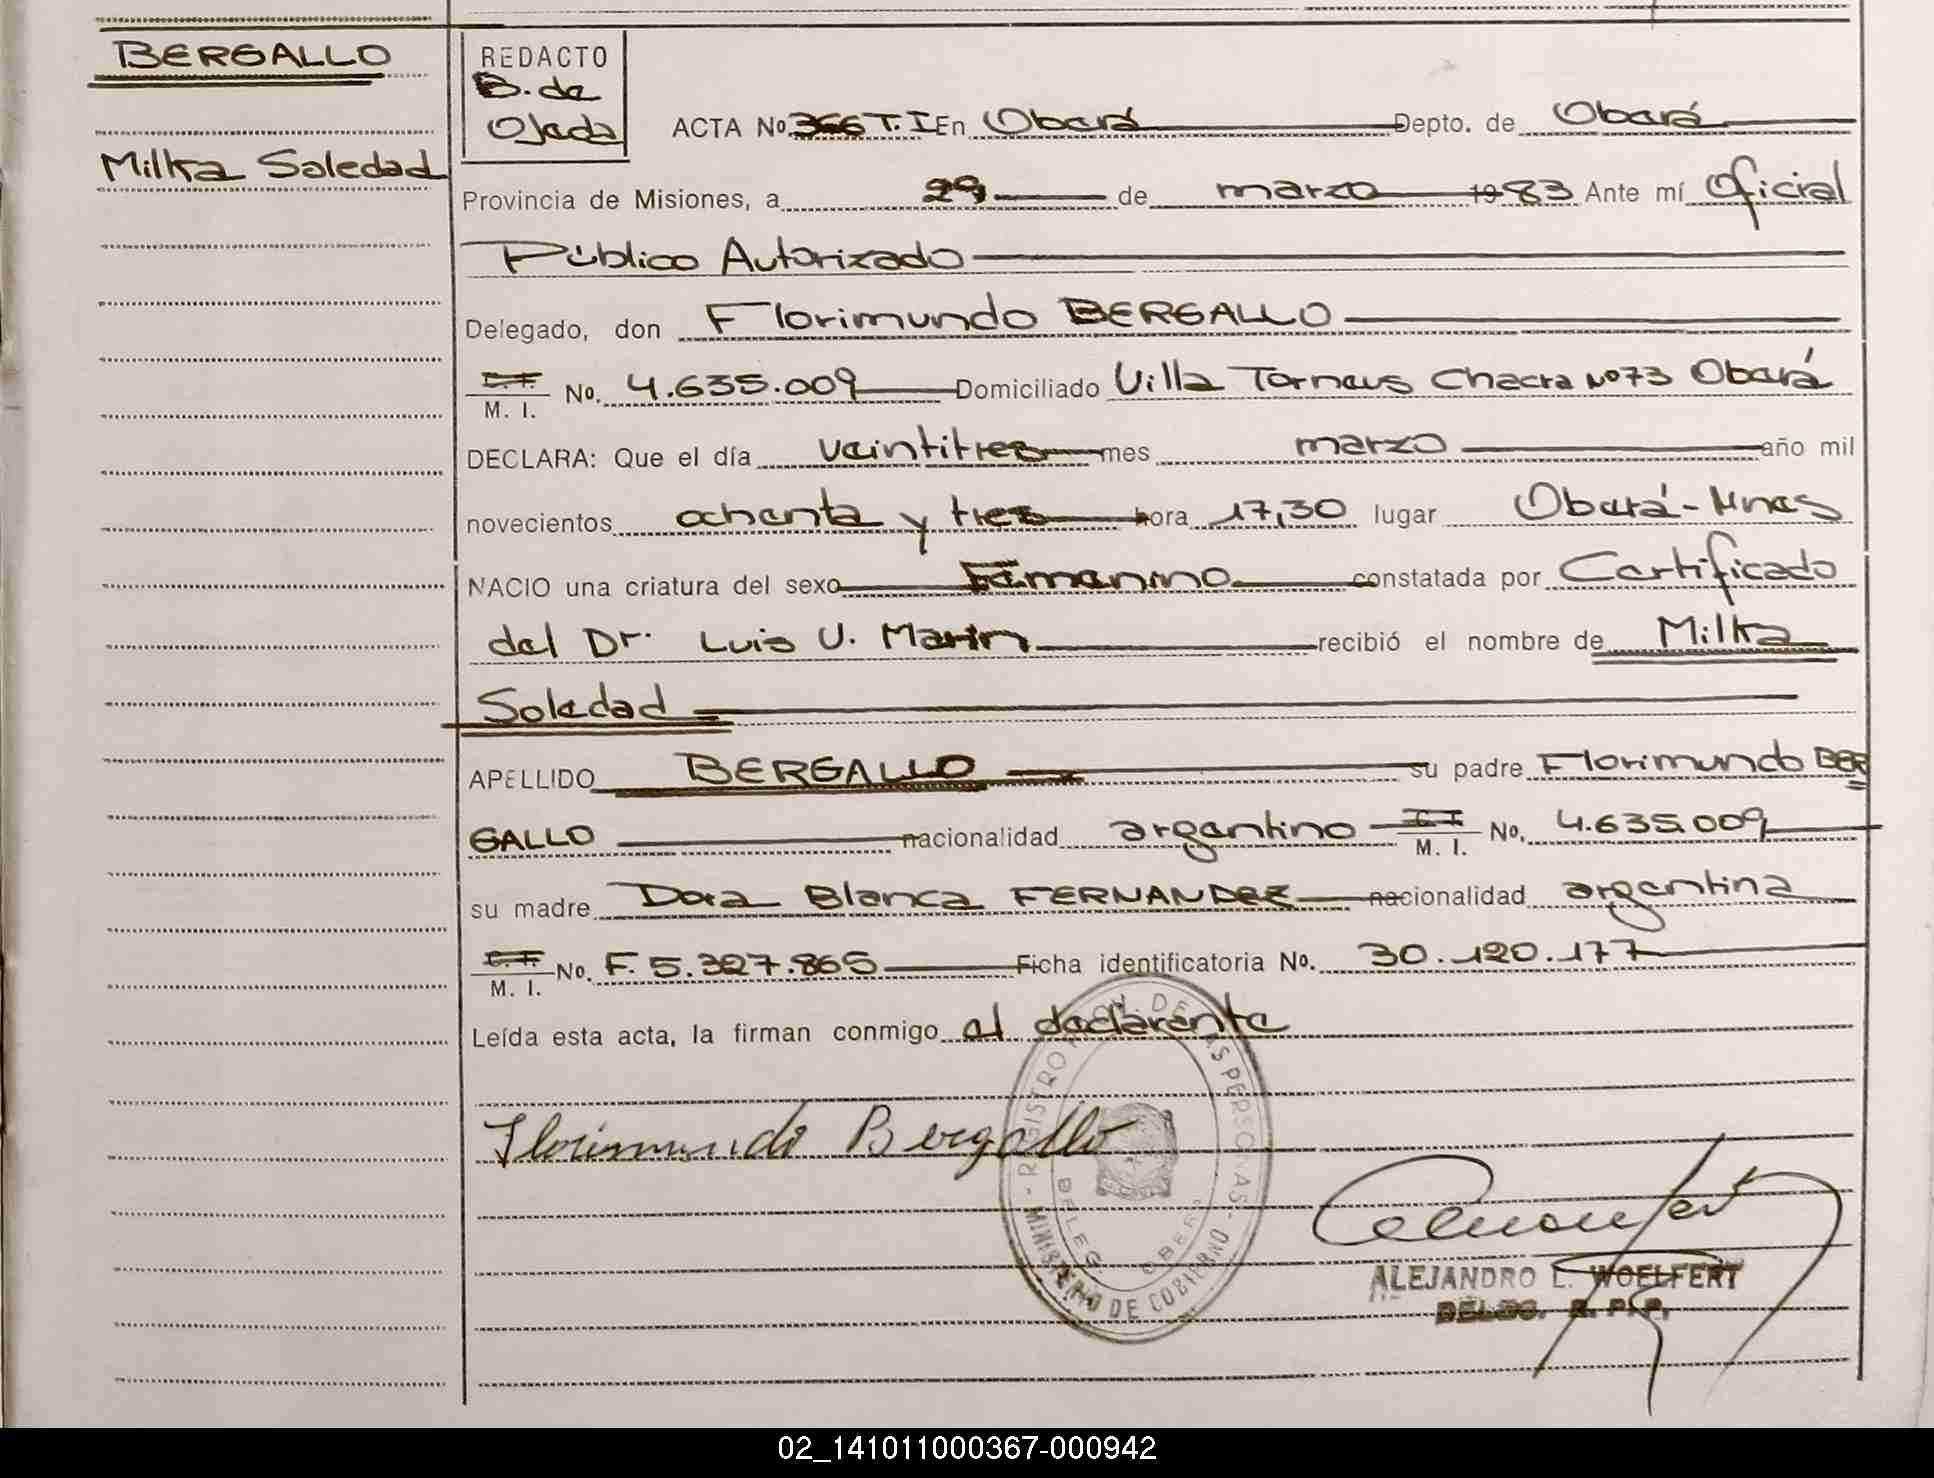 BERGALLO
Milka Soledad
REDACTO
B. de
Ojeda
ACTA No. 366 T.I En Oberá Depto. de Oberá
Provincia de Misiones, a 29 de marzo 1983 Ante mí Oficial
Público Autorizado
Delegado, don Florimundo BERGALLO
C. I. M. I. No. 4.635.009 Domiciliado Villa Torneus Chacra Nº 73 Oberá
DECLARA: Que el día veintitres mes marzo año mil
novecientos ochenta y tres hora 17,30 lugar Oberá - Mnes
NACIO una criatura del sexo Femenino constatada por Certificado
del Dr. Luis V. Marin recibió el nombre de Milka
Soledad
APELLIDO BERGALLO su padre Florimundo BER
GALLO nacionalidad argentino C. I. M. I. No. 4.635.009
su madre Dora Blanca FERNANDEZ nacionalidad argentina
C. I. M. I. No. F. 5.327.865 Ficha identificatoria No. 30.120.177
Leída esta acta, la firman conmigo el declarante
Florimundo Bergallo
REGISTRO DE LAS PERSONAS
MINISTERIO DE GOBIERNO
ALEJANDRO L. WOELFERT
DELEG. R. P. P.
02_141011000367-000942